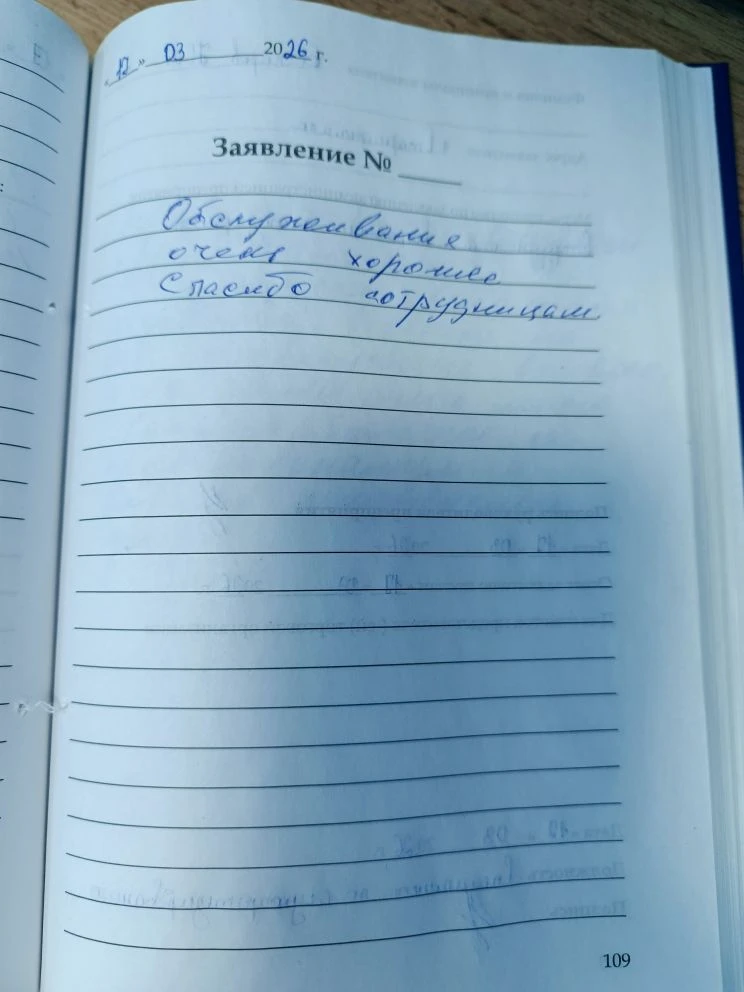 « 12 » 03 2026 г.
Заявление № ____
Обслуживание
очень хорошее
Спасибо сотрудницам
109